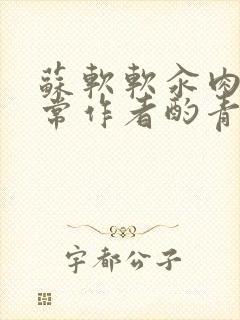 蘇軟軟汆肉
常作者酌青
宇都公子